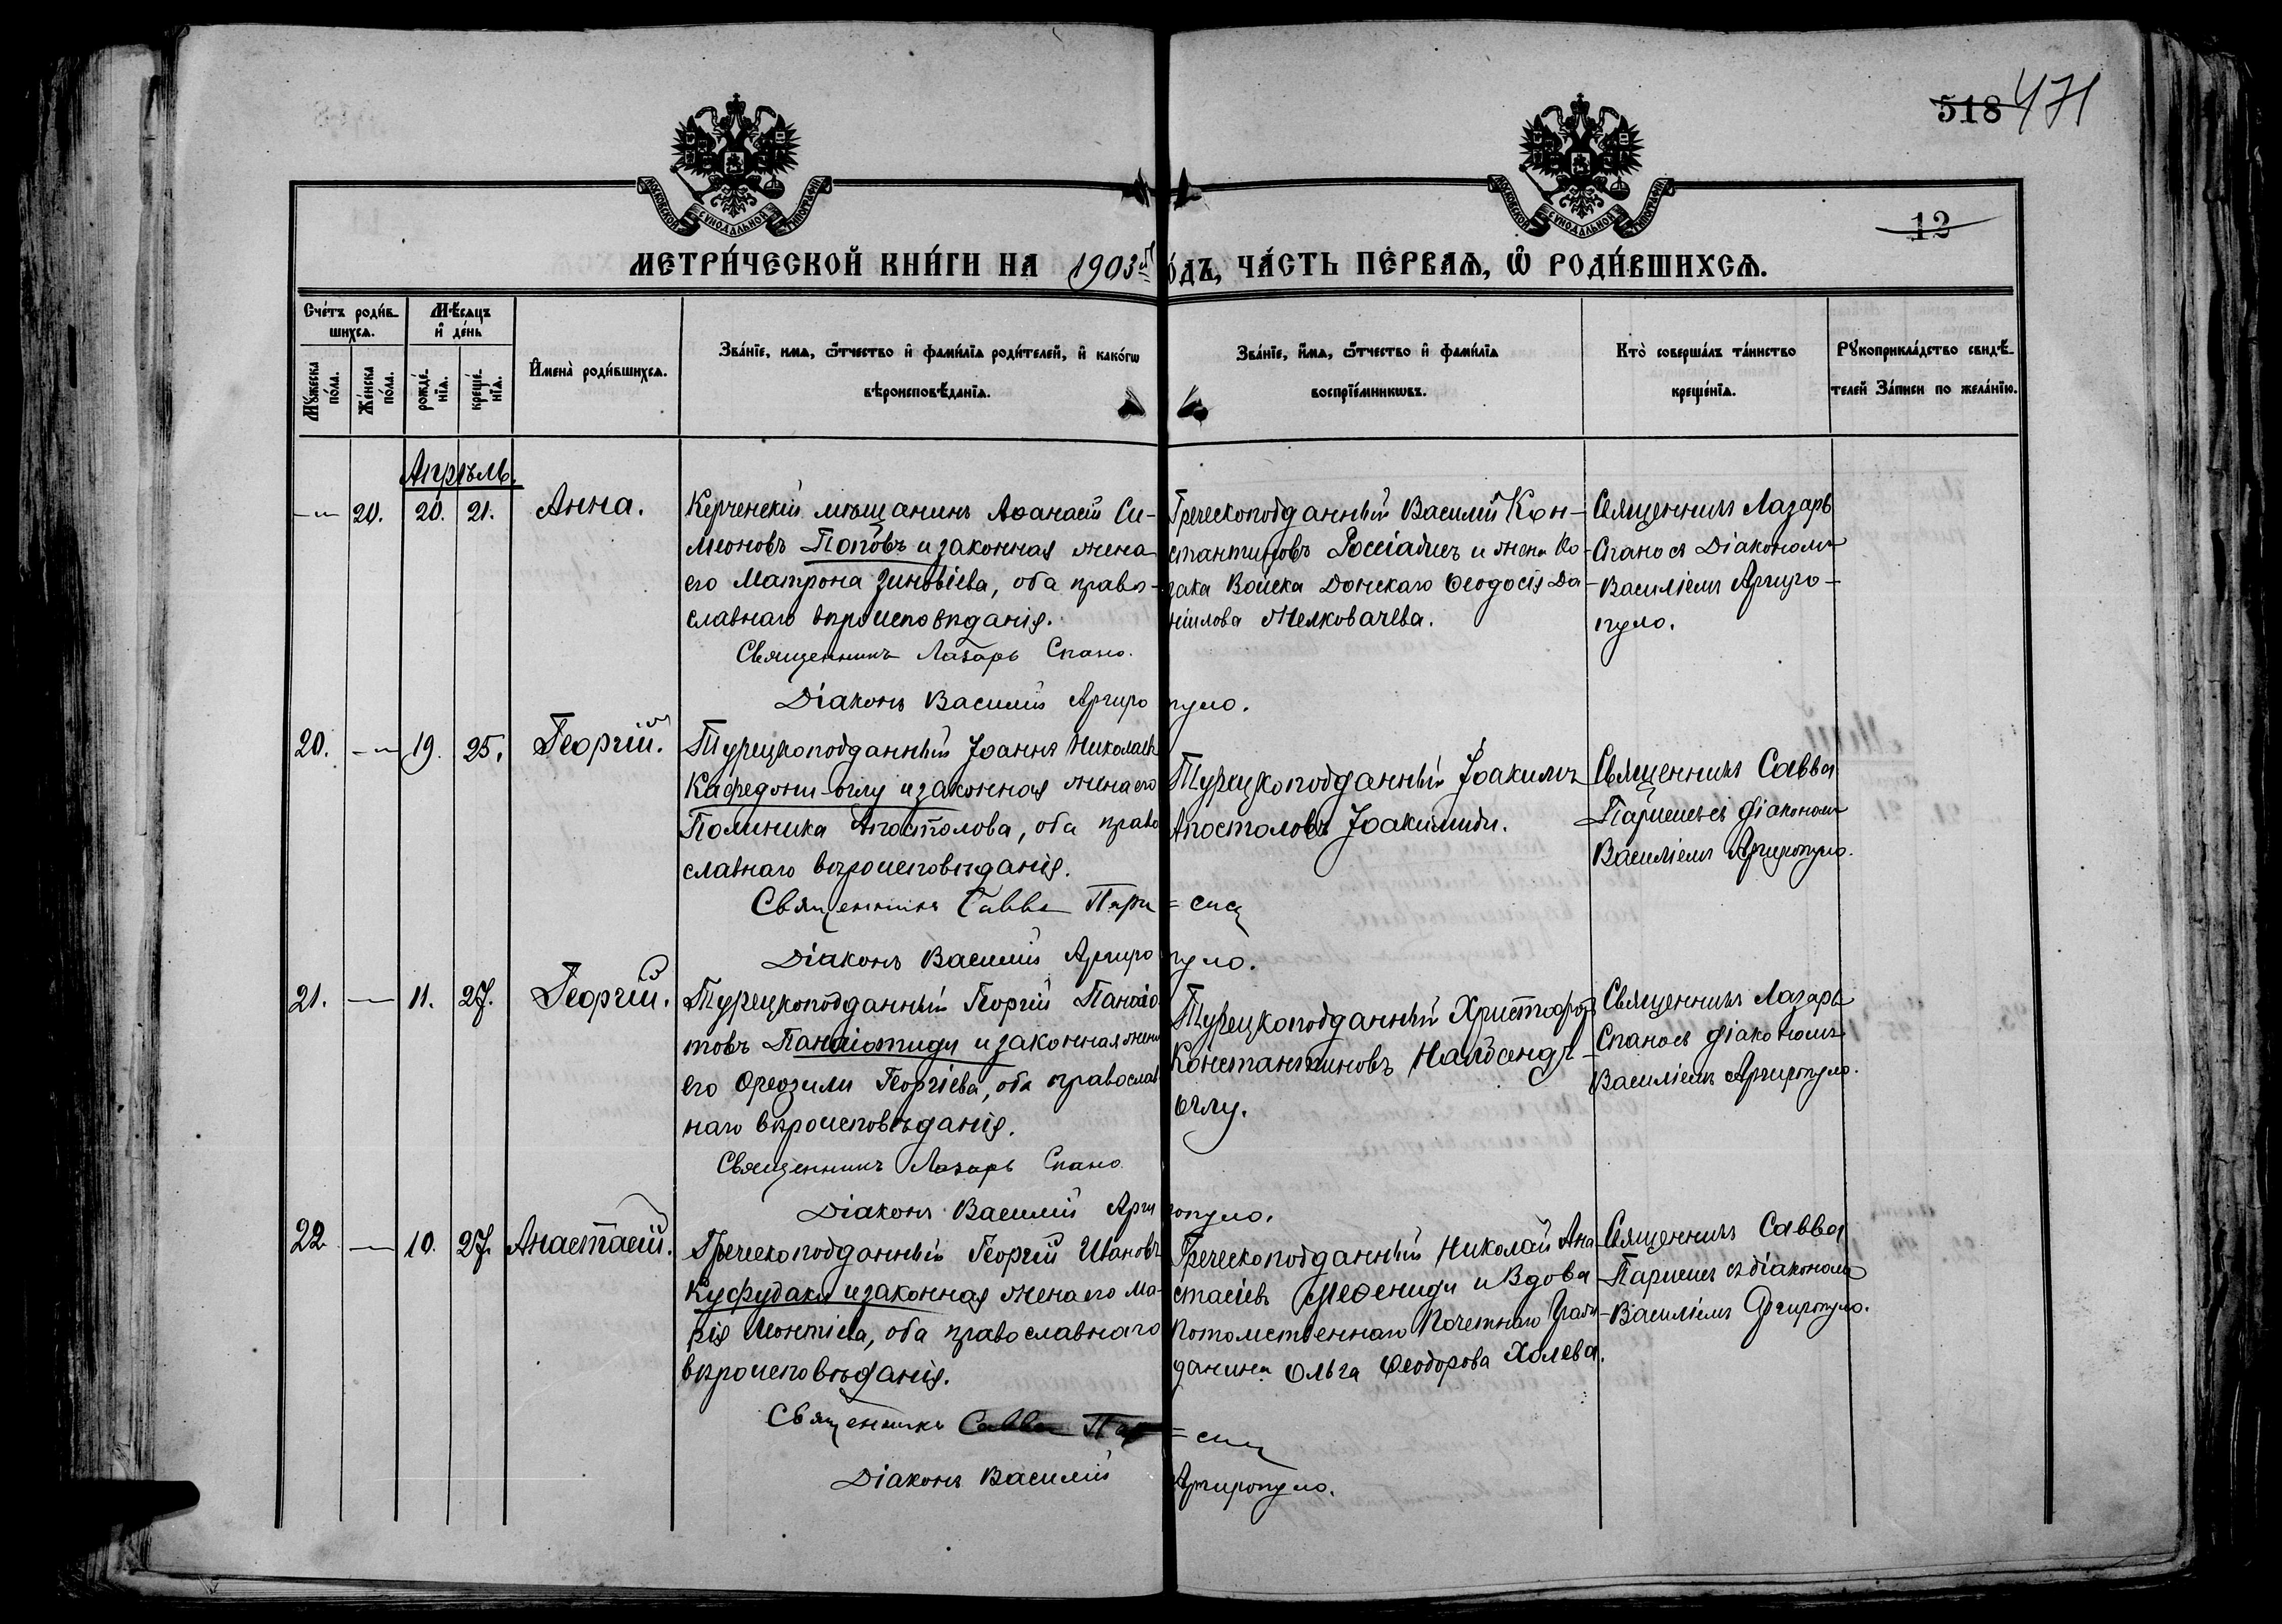 518 471
МОСКОВСКОЙ СѴНОДАЛЬНОЙ ТИПОГРАФІИ
МОСКОВСКОЙ СѴНОДАЛЬНОЙ ТИПОГРАФІИ
12
МЕТРИ́ЧЕСКОЙ КНИ́ГИ НА 1903й О́ДЪ, ЧА́СТЬ ПЕ́РВАѦ, Ѡ РОДИ́ВШИХСѦ.
Сче́тъ роди́в-
шихсѧ.
Мꙋ́жеска
по́ла.
Же́нска
по́ла.
Мѣ́сѧцъ
и҆ де́нь
рожде́-
нїѧ.
креще́-
нїѧ.
И҆мена̀ роди́вшихсѧ.
Зва́нїе, имѧ, ѻ҆́тчество и҆ фами́лїѧ роди́телей, и҆ како́гѡ
вѣроисповѣ́данїѧ.
Зва́нїе, и҆́мѧ, ѻ҆́тчество и҆ фами́лїѧ
воспрїе́мникѡвъ.
Кто̀ соверша́лъ та́инство
креще́нїѧ.
Рꙋкоприкла́дство свидѣ́-
телей За́писи по жела́нїю.
Апрѣль.
— 20. 20. 21. Анна.
Керченскій мѣщанинъ Аѳанасій Си-
меоновъ Поповъ и законная жена
его Матрона Зиновіева, оба право-
славнаго вѣроисповѣданія.
Священникъ Лазарь Спано.
Діаконъ Василій Аргиропуло.
Греческоподданный Василій Кон-
стантиновъ Россіадисъ и жена Ко-
зака Войска Донскаго Ѳеодосія Да-
ніилова Мелковачева.
Священникъ Лазарь
Спано съ Діакономъ
Василіемъ Аргиро-
пуло.
20. — 19. 25. Георгій.
Турецкоподданный Іоаннъ Николаевъ
Кафедони-оглу и законная жена его
Полиника Апостолова, оба право
славнаго вѣроисповѣданія.
Священникъ Савва Пари=сисъ
Діаконъ Василій Аргиропуло.
Турецкоподданный Іоакимъ
Апостоловъ Іоакимиди.
Священникъ Савва
Парисисъ съ діакономъ
Василіемъ Аргиропуло.
21. — 11. 27. Георгій.
Турецкоподданный Георгій Панаіо
товъ Панаіотиди и законная жена
его Ореозили Георгіева, оба православ
наго вѣроисповѣданія.
Священникъ Лазарь Спано
Діаконъ Василій Аргиропуло.
Турецкоподданный Христофоръ
Константиновъ
оглу.
Священникъ Лазарь
Спано съ діакономъ
Василіемъ Аргиропуло.
22 — 10. 27. Анастасій.
Греческоподданный Георгій Ивановъ
Куфудаки и законная жена его Ма-
рія Леонтіева, оба православнаго
вѣроисповѣданія.
Священникъ Савва Пар=сисъ
Діаконъ Василій Аргиропуло.
Греческоподданный Николай Ана
стасіевъ и Вдова
Потомственнаго Почетнаго Граж
данина Ольга Ѳеодорова Холева.
Священникъ Савва
Парисисъ съ діакономъ
Василіемъ Аргиропуло.